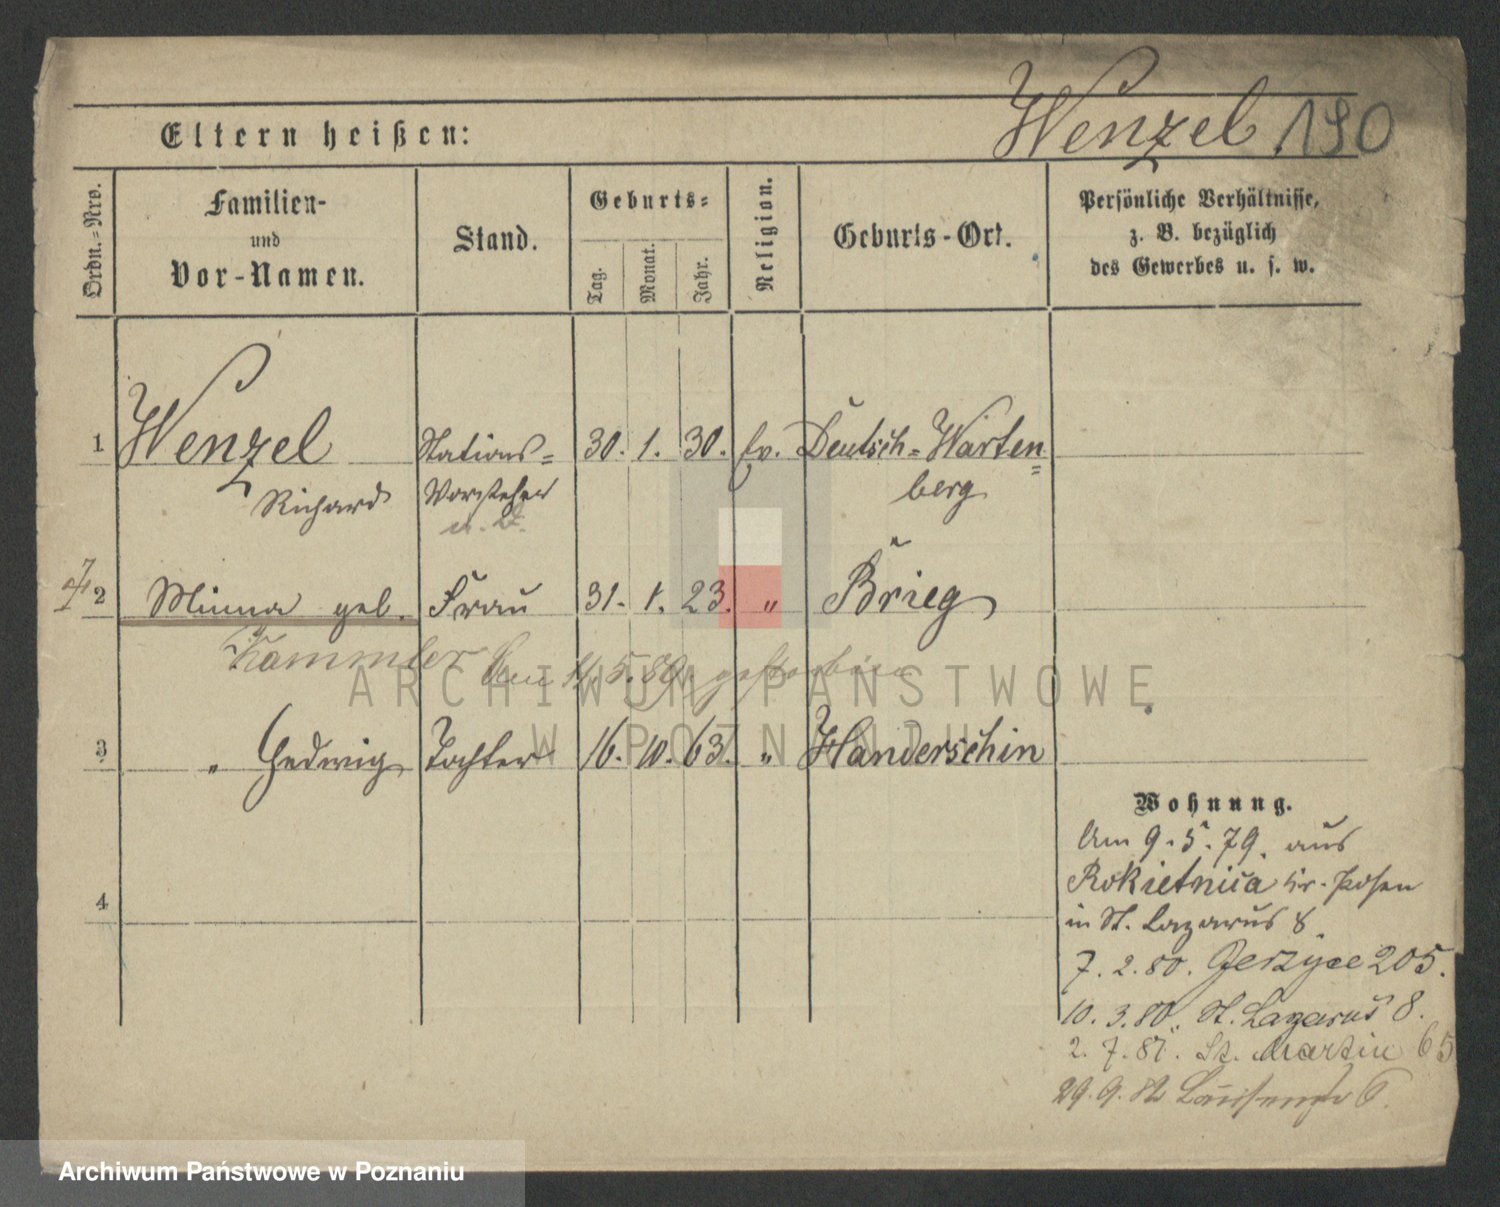 Wenzel 190
Eltern heißen:
Ordn.-Nro.
Familien-
und
Vor-Namen.
Stand.
Geburts-
Tag.
Monat.
Jahr.
Religion.
Geburts-Ort.
Persönliche Verhältnisse,
z. B. bezüglich
des Gewerbes u. s. w.
1 Wenzel Stations= 30. 1. 30. ev. Deutsch=Warten=
Richard Vorsteher berg
a. D.
2 Minna geb. Frau 31. 1. 23. " Brieg
Kammler Den 11.5.89. gestorben
3 " Hedwig Tochter 16. 10. 63. " Handerschin
Wohnung.
Am 9.5.79. aus
Rokietnica Kr. Posen
4
in St. Lazarus 8
7. 2. 80. Jerzyce 205.
10. 3. 80. St. Lazarus 8.
2. 7. 81. St. Martin 65
29. 9. 82 Louisenstr 6.
ARCHIWUM PAŃSTWOWE
W POZNANIU
Archiwum Państwowe w Poznaniu